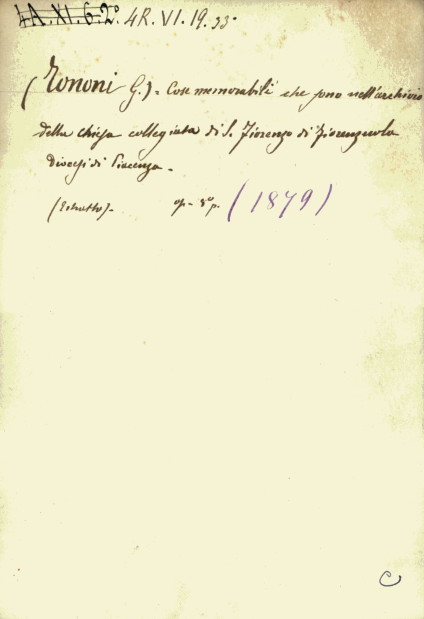 4A.XI.6.2° 4R.VI.19.33°
(Tononi G.) = Cose memorabili che sono nell'archivio
della chiesa collegiata di S. Fiorenzo di Fiorenzuola
diocesi di Piacenza.
(Estratto). op. 8° p. (1879)
C